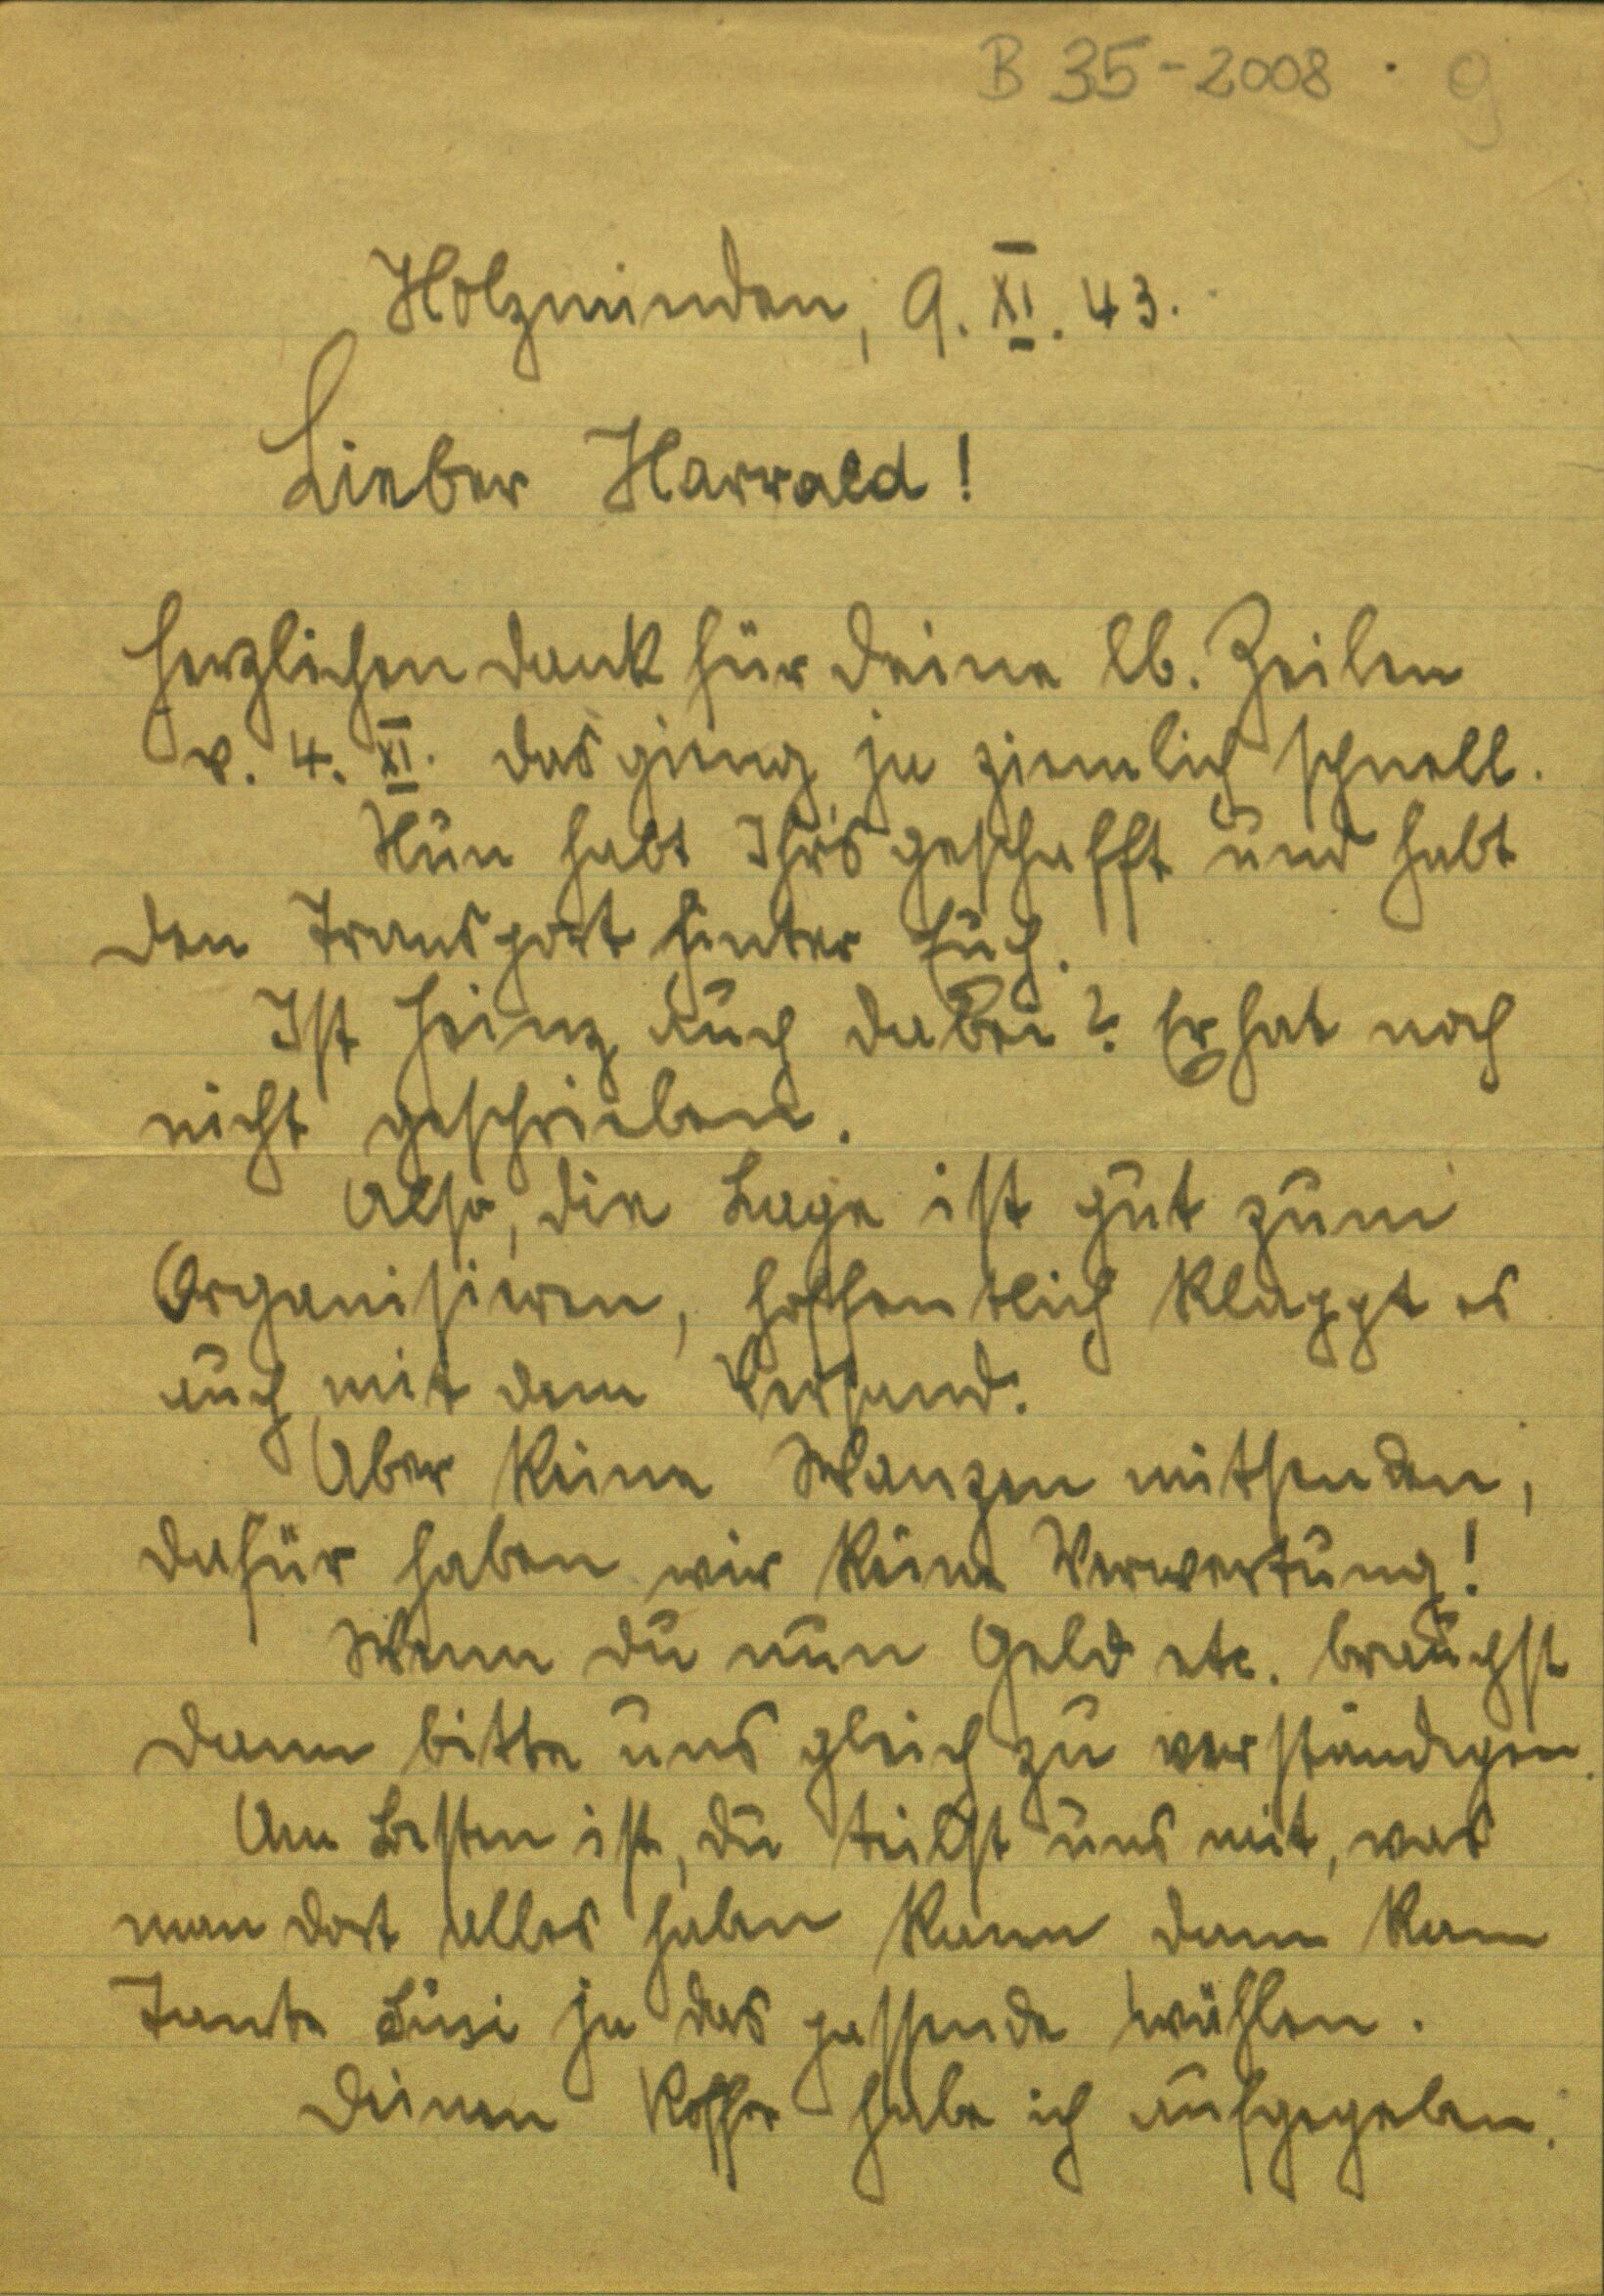 B 35-2008 · 9
Holzminden, 9. XI. 43.
Lieber Harrald!
Herzlichen Dank für Deine lb. Zeilen
v. 4. XI. Das gieng ja ziemlich schnell.
Nun habt Ihr's geschafft und habt
den Transport hinter Euch.
Ist Heinz auch dabei? Er hat noch
nicht geschrieben.
Also, die Lage ist gut zum
Organisieren, hoffentlich klappt es
auch mit dem Versand.
Aber keine Wanzen mitsenden,
dafür haben wir keine Verwertung!
Wenn Du nun Geld etc. brauchst
dann bitte uns gleich zu verständigen.
Am Besten ist, Du teilst uns mit, was
man dort alles haben kann dann kann
Tante Susi ja das passende wählen.
Deinen Koffer habe ich aufgegeben.